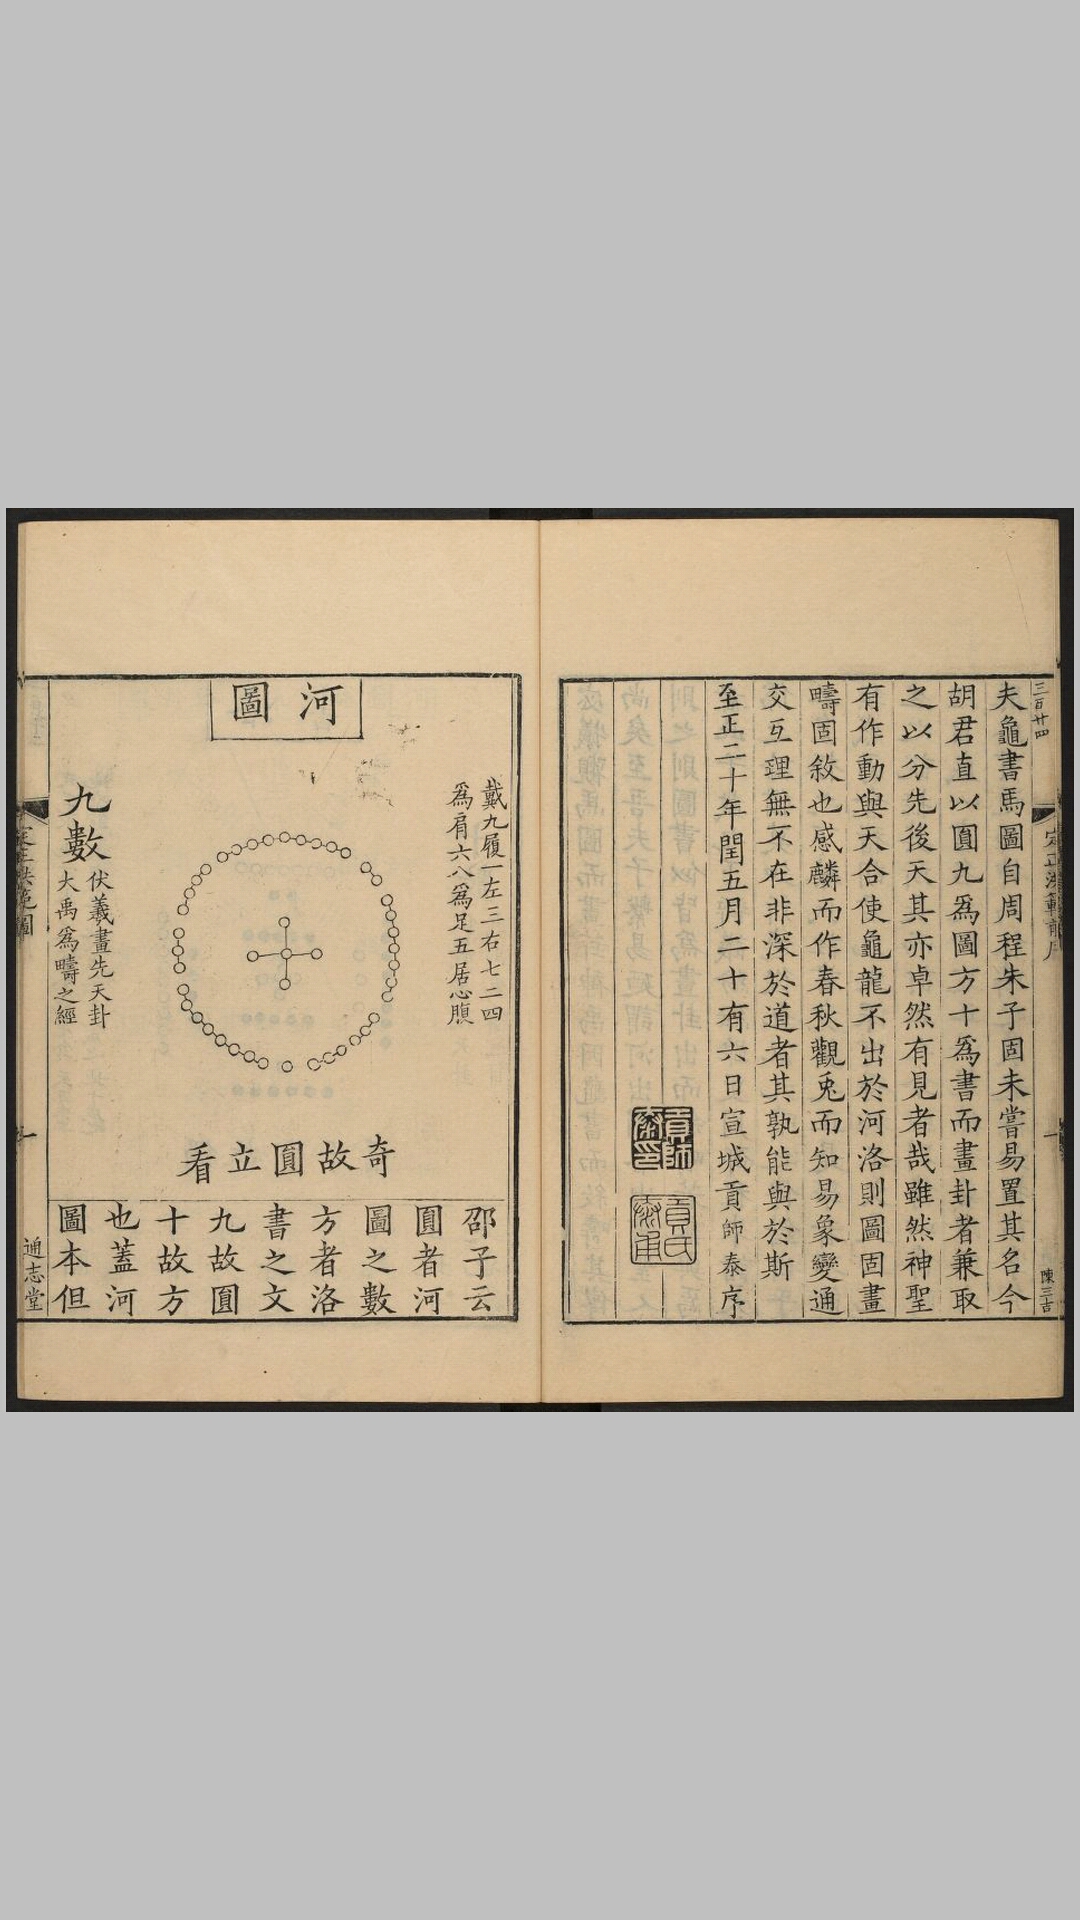 三百廿四
夫龜書馬圖自周程朱子固未嘗易置其名今
胡君直以圓九為圖方十為書而畫卦者兼取
之以分先後天其亦卓然有見者哉雖然神聖
有作動與天合使龜龍不出於河洛則圖固畫
疇固敘也感麟而作春秋觀兎而知易象變通
交互理無不在非深於道者其孰能與於斯
至正二十年閏五月二十有六日宣城貢師泰序
陳三吉
河圖
戴九履一左三右七二四
為肩六八為足五居心腹
九數
伏羲畫先天卦
大禹為疇之經
奇故圓立看
邵子云
圓者河
圖之數
方者洛
書之文
九故圓
十故方
也蓋河
圖本但
通志堂